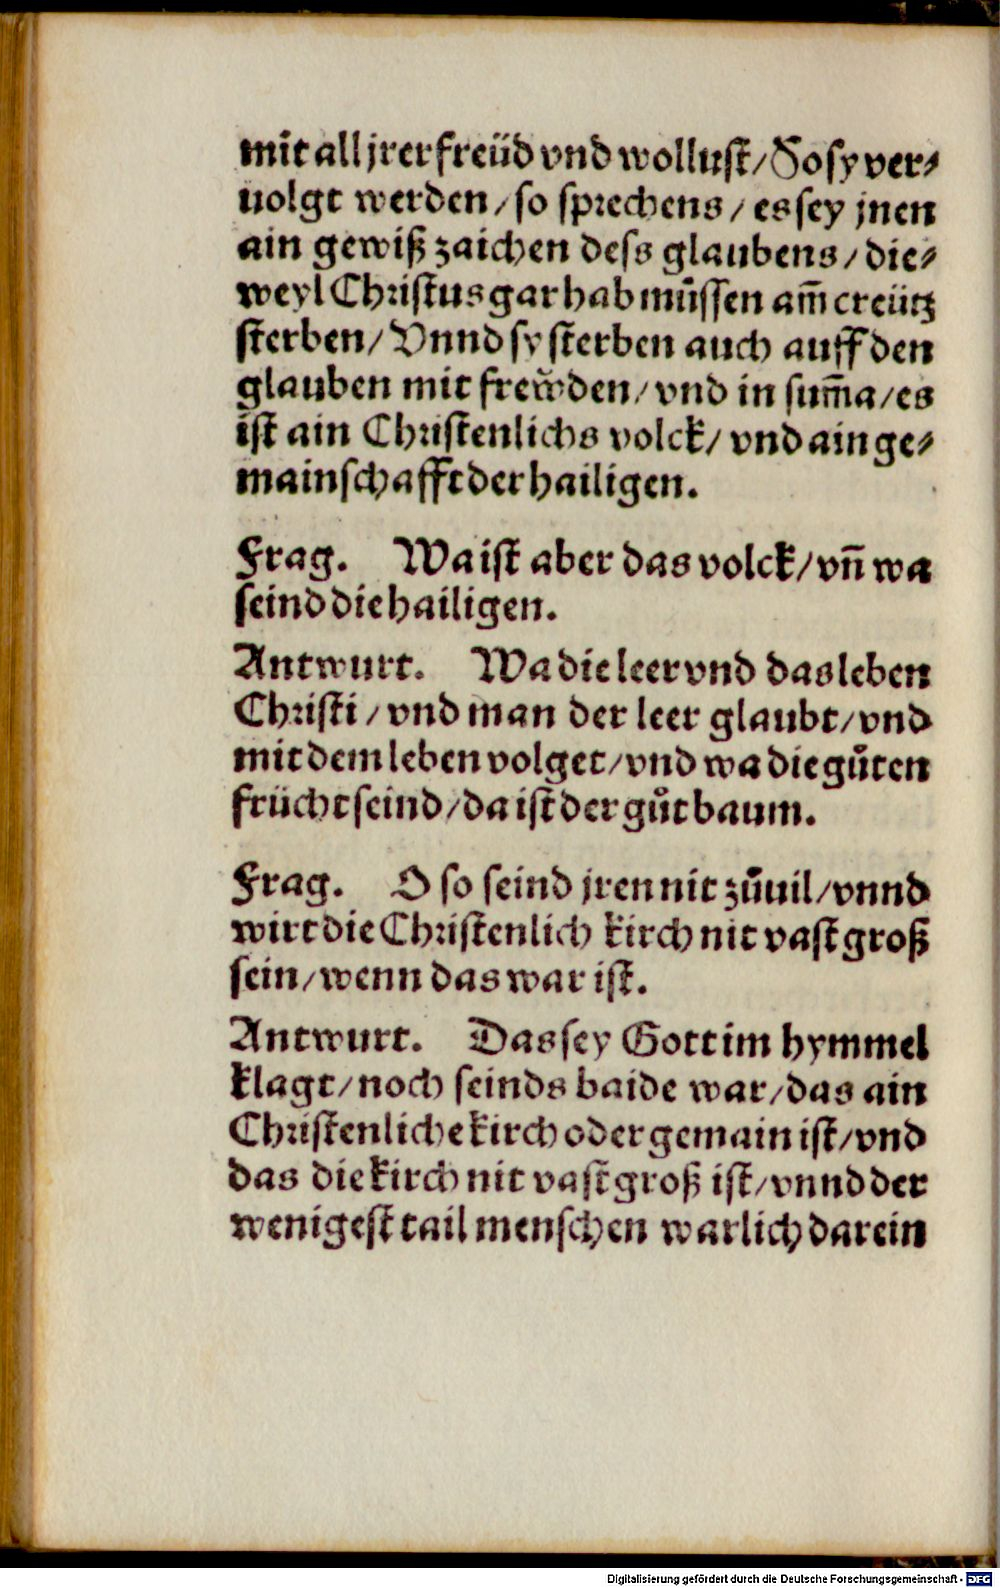 mit all jrer freüd vnd wollust / So sy ver⸗
uolgt werden / so sprechens / es sey jnen
ain gewiß zaichen dess glaubens / die⸗
weyl Christus gar hab müssen am̄ creütz
sterben / Vnnd sy sterben auch auff den
glauben mit frewͤden / vnd in sum̄a / es
ist ain Christenlichs volck / vnd ain ge⸗
mainschafft der hailigen.
Frag. Wa ist aber das volck / vn̄ wa
seind die hailigen.
Antwurt. Wa die leer vnd das leben
Christi / vnd man der leer glaubt / vnd
mit dem leben volget / vnd wa die guͦten
frücht seind / da ist der guͦt baum.
Frag. O so seind jren nit zuͦuil / vnnd
wirt die Christenlich kirch nit vast groß
sein / wenn das war ist.
Antwurt. Das sey Gott im hymmel
klagt / noch seinds baide war / das ain
Christenliche kirch oder gemain ist / vnd
das die kirch nit vast groß ist / vnnd der
wenigest tail menschen warlich darein
Digitalisierung gefördert durch die Deutsche Forschungsgemeinschaft - DFG